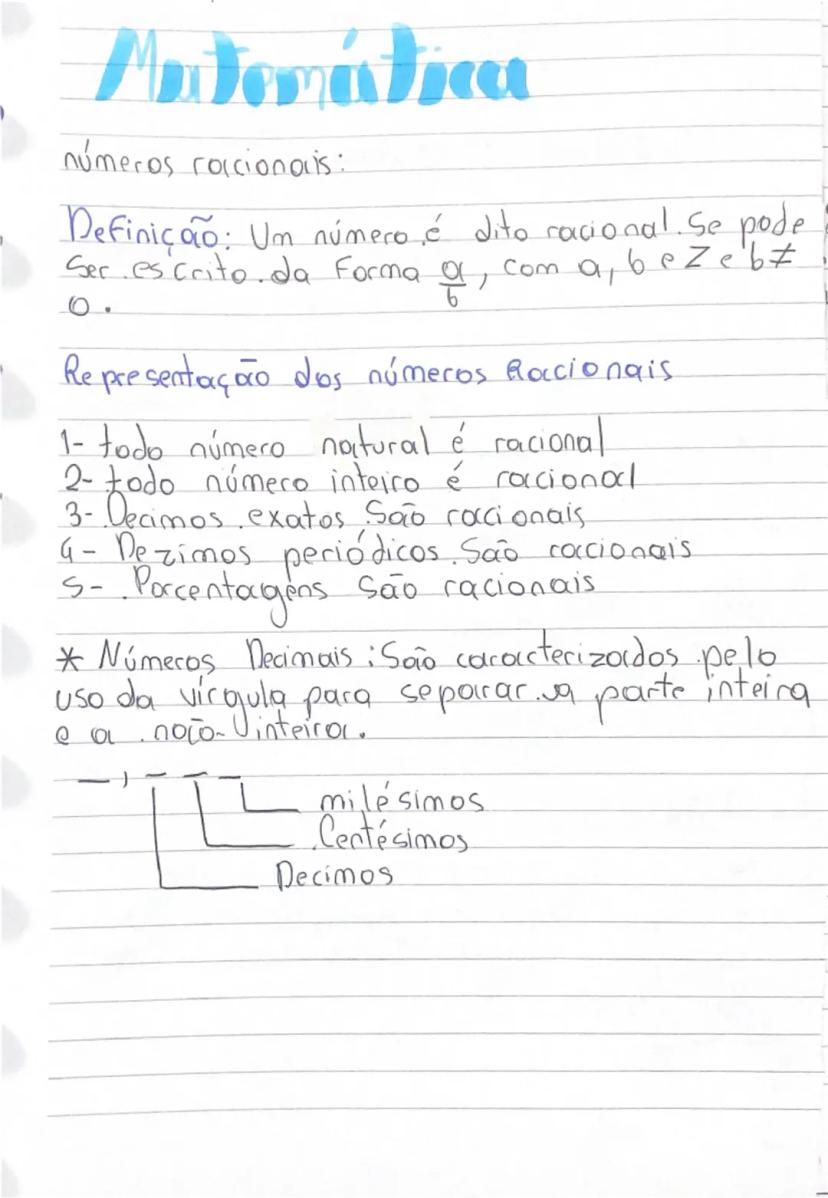 Matemática
números racionais:
Definição: Um número é dito racional se pode
ser escrito da forma a/b, com a, b e Z e b ≠
0.
Representação dos números Racionais
1- todo número natural é racional
2- todo número inteiro é racional
3- Decimos exatos São racionais
4- Dezimos periódicos São racionais
5- Porcentagens São racionais
* Números Decimais: São caracterizados pelo
uso da vírgula para separar a parte inteira
e a não-inteira.
_, _ _ _
milésimos
Centésimos
Decimos